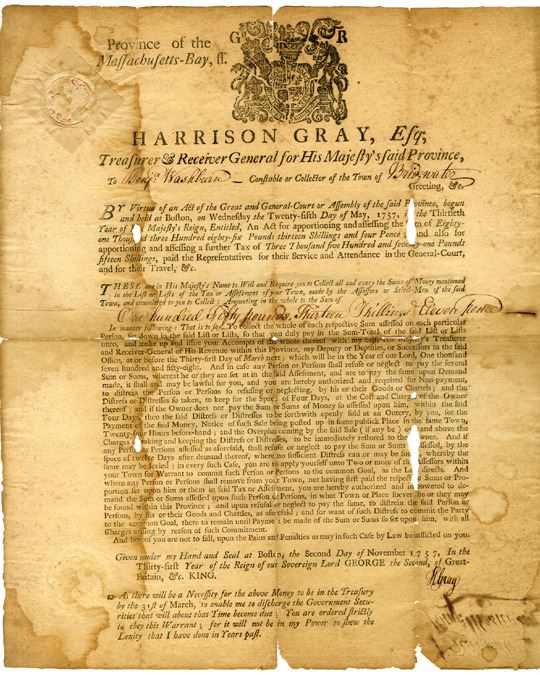 Province of the
Massachusetts-Bay, ss.
G R
HARRISON GRAY, Esq;
Treasurer & Receiver General for His Majesty's said Province,
To Benjª. Washburn – Constable or Collector of the Town of Bridgwater
Greeting, &c.
BY Virtue of an Act of the Great and General-Court or Assembly of the said Province, begun
and held at Boston, on Wednesday the Twenty-fifth Day of May, 1757, the Thirtieth
Year of Majesty's Reign, Entitled, An Act for apportioning and assessing the Sum of Eighty-
one Thousand three Hundred eighty-five Pounds thirteen Shillings and four Pence; and also for
apportioning and assessing a further Tax of Three Thousand five Hundred and seventy-one Pounds
fifteen Shillings, paid the Representatives for their Service and Attendance in the General-Court,
and for their Travel, &c.
THESE are in His Majesty's Name to Will and Require you to Collect all and every the Sums of Money mentioned
in the List or Lists of the Tax or Assessment of your Town, made by the Assessors or Select Men of the said
Town, and committed to you to Collect; Amounting in the whole to the Sum of
One hundred Fifty pounds, Thirteen Shillings & Eleven pence
In manner following; That is to say, To collect the whole of each respective Sum assessed on each particular
Person, set down in the said List or Lists, so that you duly pay in the Sum-Total of the said List or Lists
up and issue your Accompts of the whole thereof with my Self, Treasurer
and Receiver-General of His Revenue within this Province, my Deputy or Deputies, or Successors in the said
Office, at or before the Thirty-first Day of March next; which will be in the Year of our Lord, One thousand
seven hundred and fifty-eight. And in case any Person or Persons shall refuse or neglect to pay the several
Sum or Sums, whereat he or they are set at in the said Assessment, and are to pay the same upon Demand
made, it shall may be lawful for you, and you are hereby authorized and required for Non-payment,
to distrein the Person or Persons so refusing or neglecting, by his or their Goods or Chattels; and the
Distress or Distresses so taken, to keep for the Space of Four Days, at the Cost and Charge of the Owner
thereof; and if the Owner does not pay the Sum or Sums of Money so assessed upon him, within the said
Four Days, then the said Distress or Distresses to be forthwith openly sold at an Outcry, by you, for the
Payment of the said Money, Notice of such Sale being posted up in some publick Place in the same Town,
Twenty-four Hours before-hand; and the Overplus coming by the said Sale (if any be) and above the
Charges of taking and keeping the Distress or Distresses, to be immediately restored to the Owner. And if
any Person or Persons assessed as aforesaid, shall refuse or neglect to pay the Sum or Sums so assessed, by the
space of twelve Days after demand thereof, where no sufficient Distress can or may be found, whereby the
same may be levied; in every such Case, you are to apply yourself unto Two or more of the Assessors within
your Town for Warrant to commit such Person or Persons to the common Goal, as the Law directs. And
where any Person or Persons shall remove from your Town, not having first paid the respective Sums or Pro-
portion set upon him or them in said Tax or Assessment, you are hereby authorized and impowered to de-
mand the Sum or Sums assessed upon such Person or Persons, in what Town or Place soever he or they may
be found within this Province; and upon refusal or neglect to pay the same, to distrein the said Person or
Persons, by his or their Goods and Chattles, as aforesaid; and for want of such Distress to commit the Party
to the common Goal, there to remain until Payment be made of the Sum or Sums so set upon him, with all
Charges arising by reason of such Commitment.
And hereof you are not to fail, upon the Pains and Penalties as may in such Case by Law be inflicted on you.
Given under my Hand and Seal at Boston, the Second Day of November 1757, In the
Thirty-first Year of the Reign of our Sovereign Lord GEORGE the Second, of Great-
Britain, &c. KING.
HGray
As there will be a Necessity for the above Money to be in the Treasury
by the 31st of March, to enable me to discharge the Government Secu-
rities that will about that Time become due; You are ordered strictly
to obey this Warrant; for it will not be in my Power to shew the
Lenity that I have done in Years past.